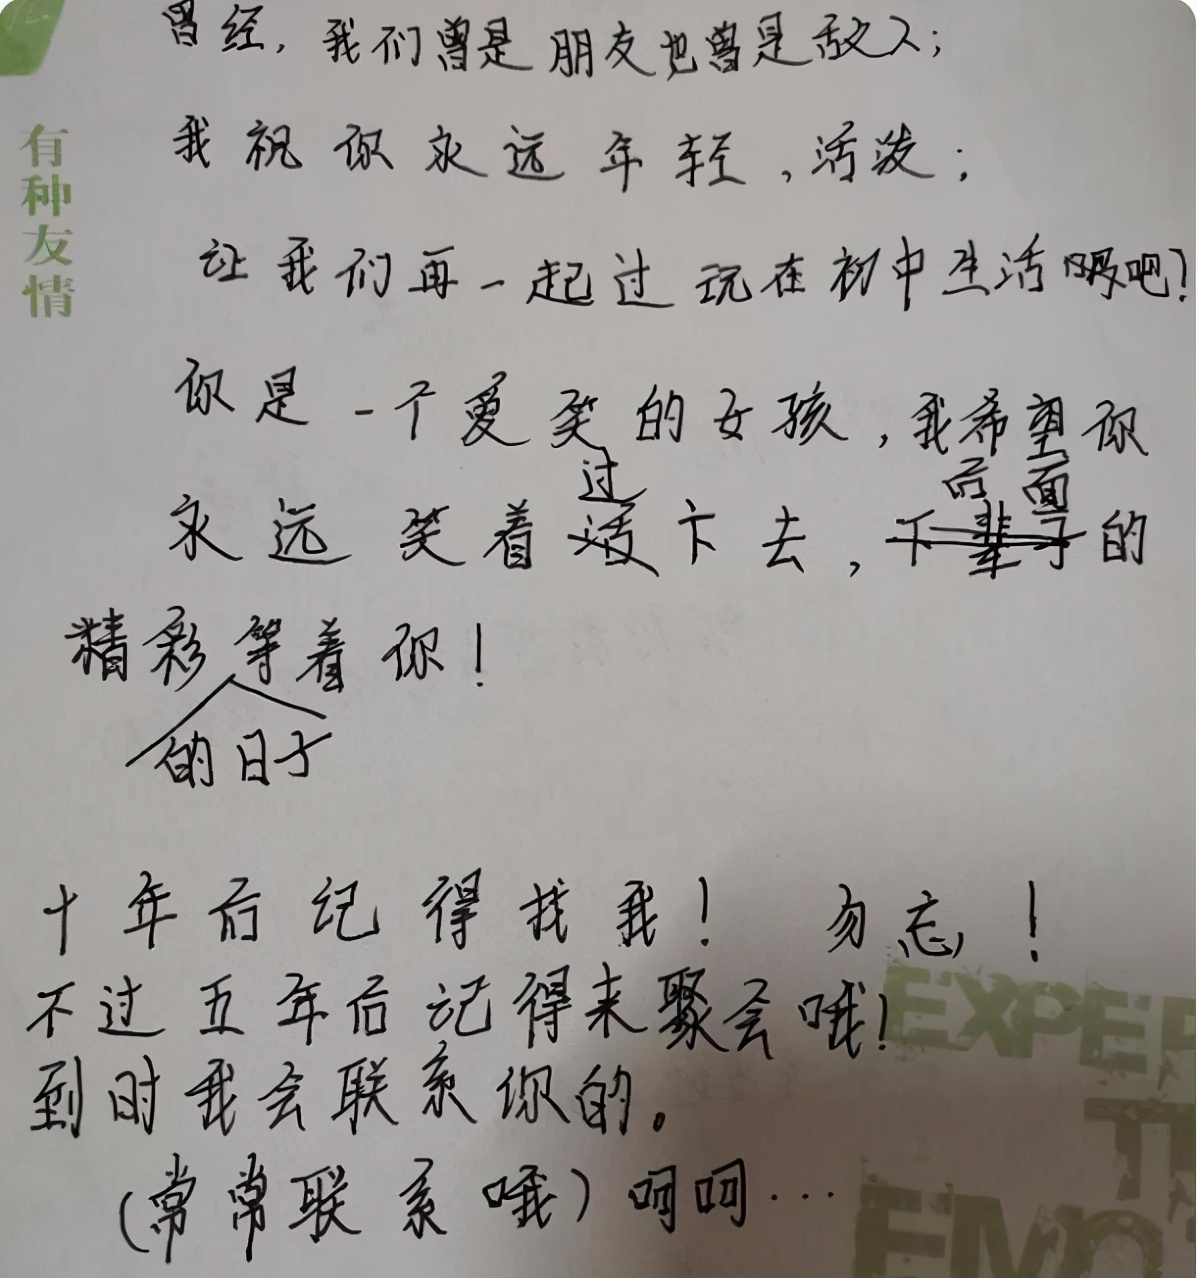 有种友情
曾经，我们曾是朋友也曾是敌人；
我祝你永远年轻，活泼；
让我们再一起过玩在初中生活吧？
你是一个爱笑的女孩，我希望你
永远笑着过下去，后面的
精彩的日子等着你！
十年后记得找我！ 勿忘！
不过五年后记得来聚会哦！
到时我会联系你的。
（常常联系哦）呵呵…
EXPE
T
EMO